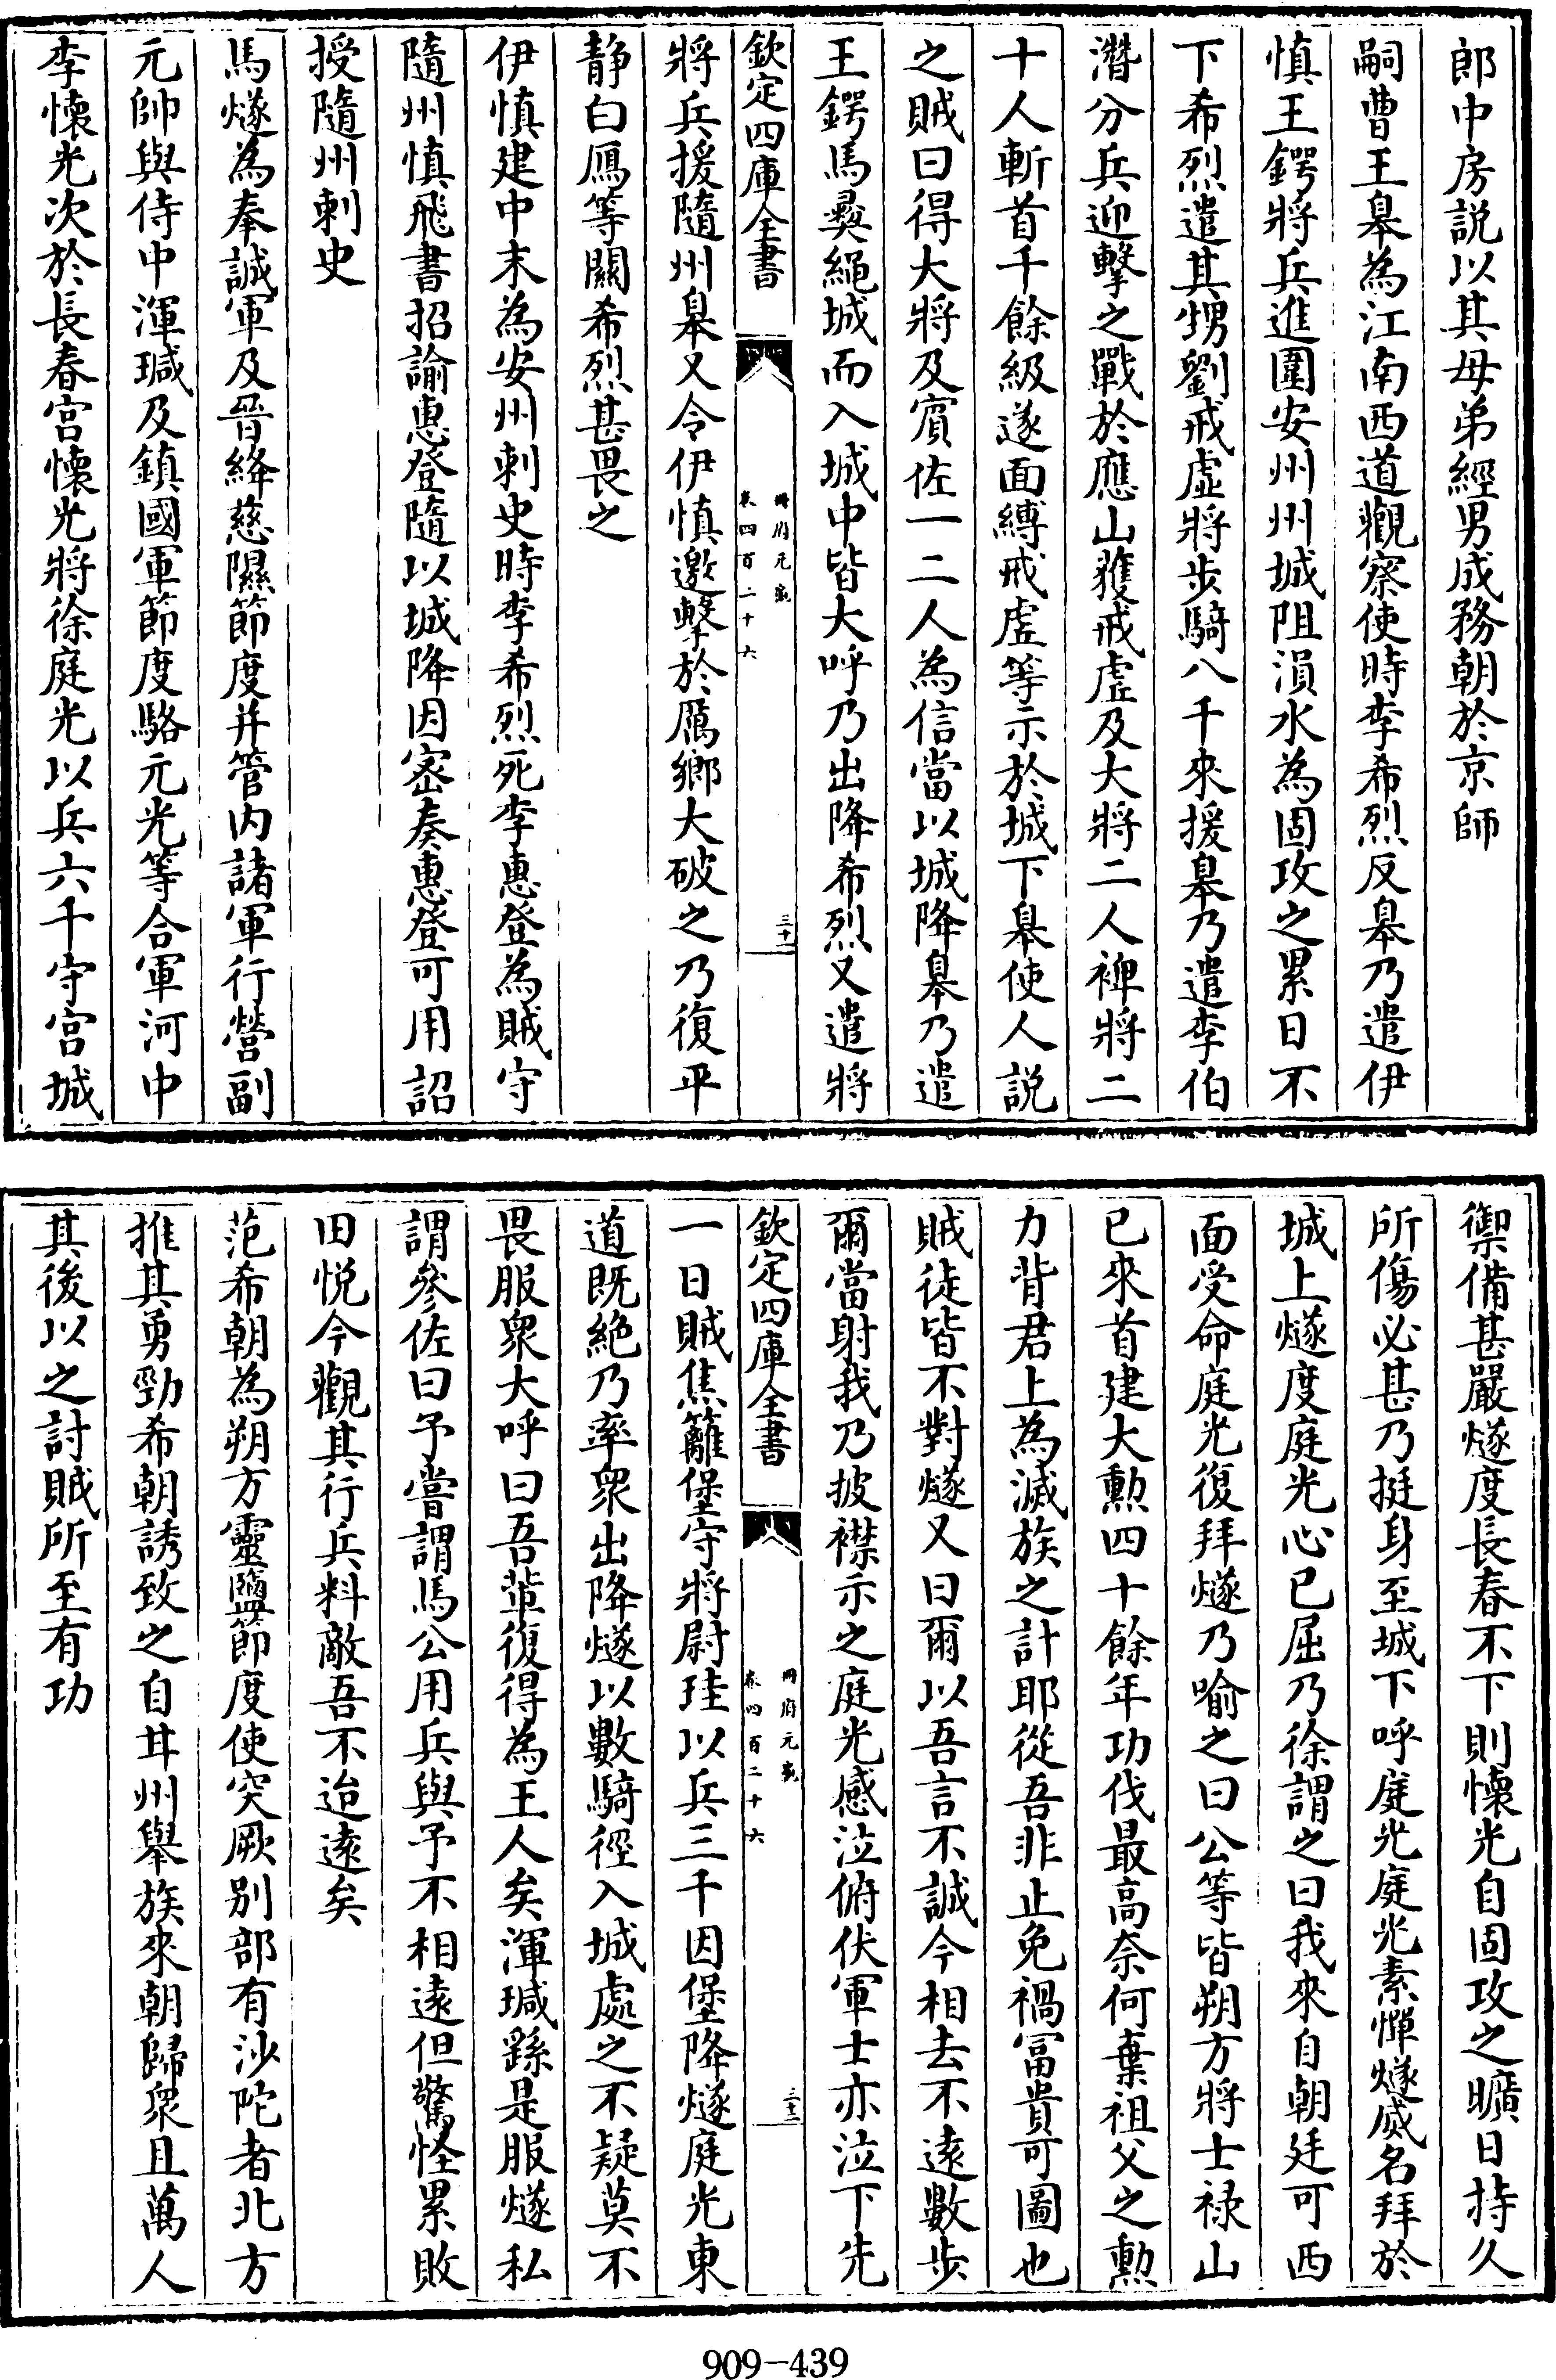 郎中房說以其母弟經男成務朝於京師
嗣曹王皋為江南西道觀察使時李希烈反皋乃遣伊
慎王鍔將兵進圍安州州城阻涢水為固攻之累日不
下希烈遣其甥劉戒虛將步騎八千來援皋乃遣李伯
潛分兵迎擊之戰於應山獲戒虛及大將二人裨將二
十人斬首千餘級遂面縛戒虛等示於城下皋使人說
之賊曰得大將及賓佐一二人為信當以城降皋乃遣
王鍔馬彛繩城而入城中皆大呼乃出降希烈又遣將
欽定四庫全書
冊府元龜
卷四百二十六
三十一
將兵援隨州皋又令伊慎邀擊於厲鄉大破之乃復平
靜白鴈等關希烈甚畏之
伊慎建中末為安州刺史時李希烈死李惠登為賊守
隨州慎飛書招諭惠登隨以城降因密奏惠登可用詔
授隨州刺史
馬燧為奉誠軍及晉絳慈隰節度并管內諸軍行營副
元帥與侍中渾瑊及鎮國軍節度駱元光等合軍河中
李懷光次於長春宮懷光將徐庭光以兵六千守宮城
禦備甚嚴燧度長春不下則懷光自固攻之曠日持久
所傷必甚乃挺身至城下呼庭光庭光素憚燧威名拜於
城上燧度庭光心已屈乃徐謂之曰我來自朝廷可西
面受命庭光復拜燧乃喻之曰公等皆朔方將士祿山
已來首建大勳四十餘年功伐最高奈何棄祖父之勳
力背君上為滅族之計耶從吾非止免禍富貴可圖也
賊徒皆不對燧又曰爾以吾言不誠今相去不遠數步
爾當射我乃披襟示之庭光感泣俯伏軍士亦泣下先
欽定四庫全書
冊府元龜
卷四百二十六
三十二
一日賊焦籬堡守將尉珪以兵三千因堡降燧庭光東
道既絕乃率衆出降燧以數騎徑入城處之不疑莫不
畏服衆大呼曰吾輩復得為王人矣渾瑊繇是服燧私
謂參佐曰予嘗謂馬公用兵與予不相遠但驚怪累敗
田悅今觀其行兵料敵吾不迨遠矣
范希朝為朔方靈鹽節度使突厥別部有沙陀者北方
推其勇勁希朝誘致之自甘州舉族來朝歸衆且萬人
其後以之討賊所至有功
909-439